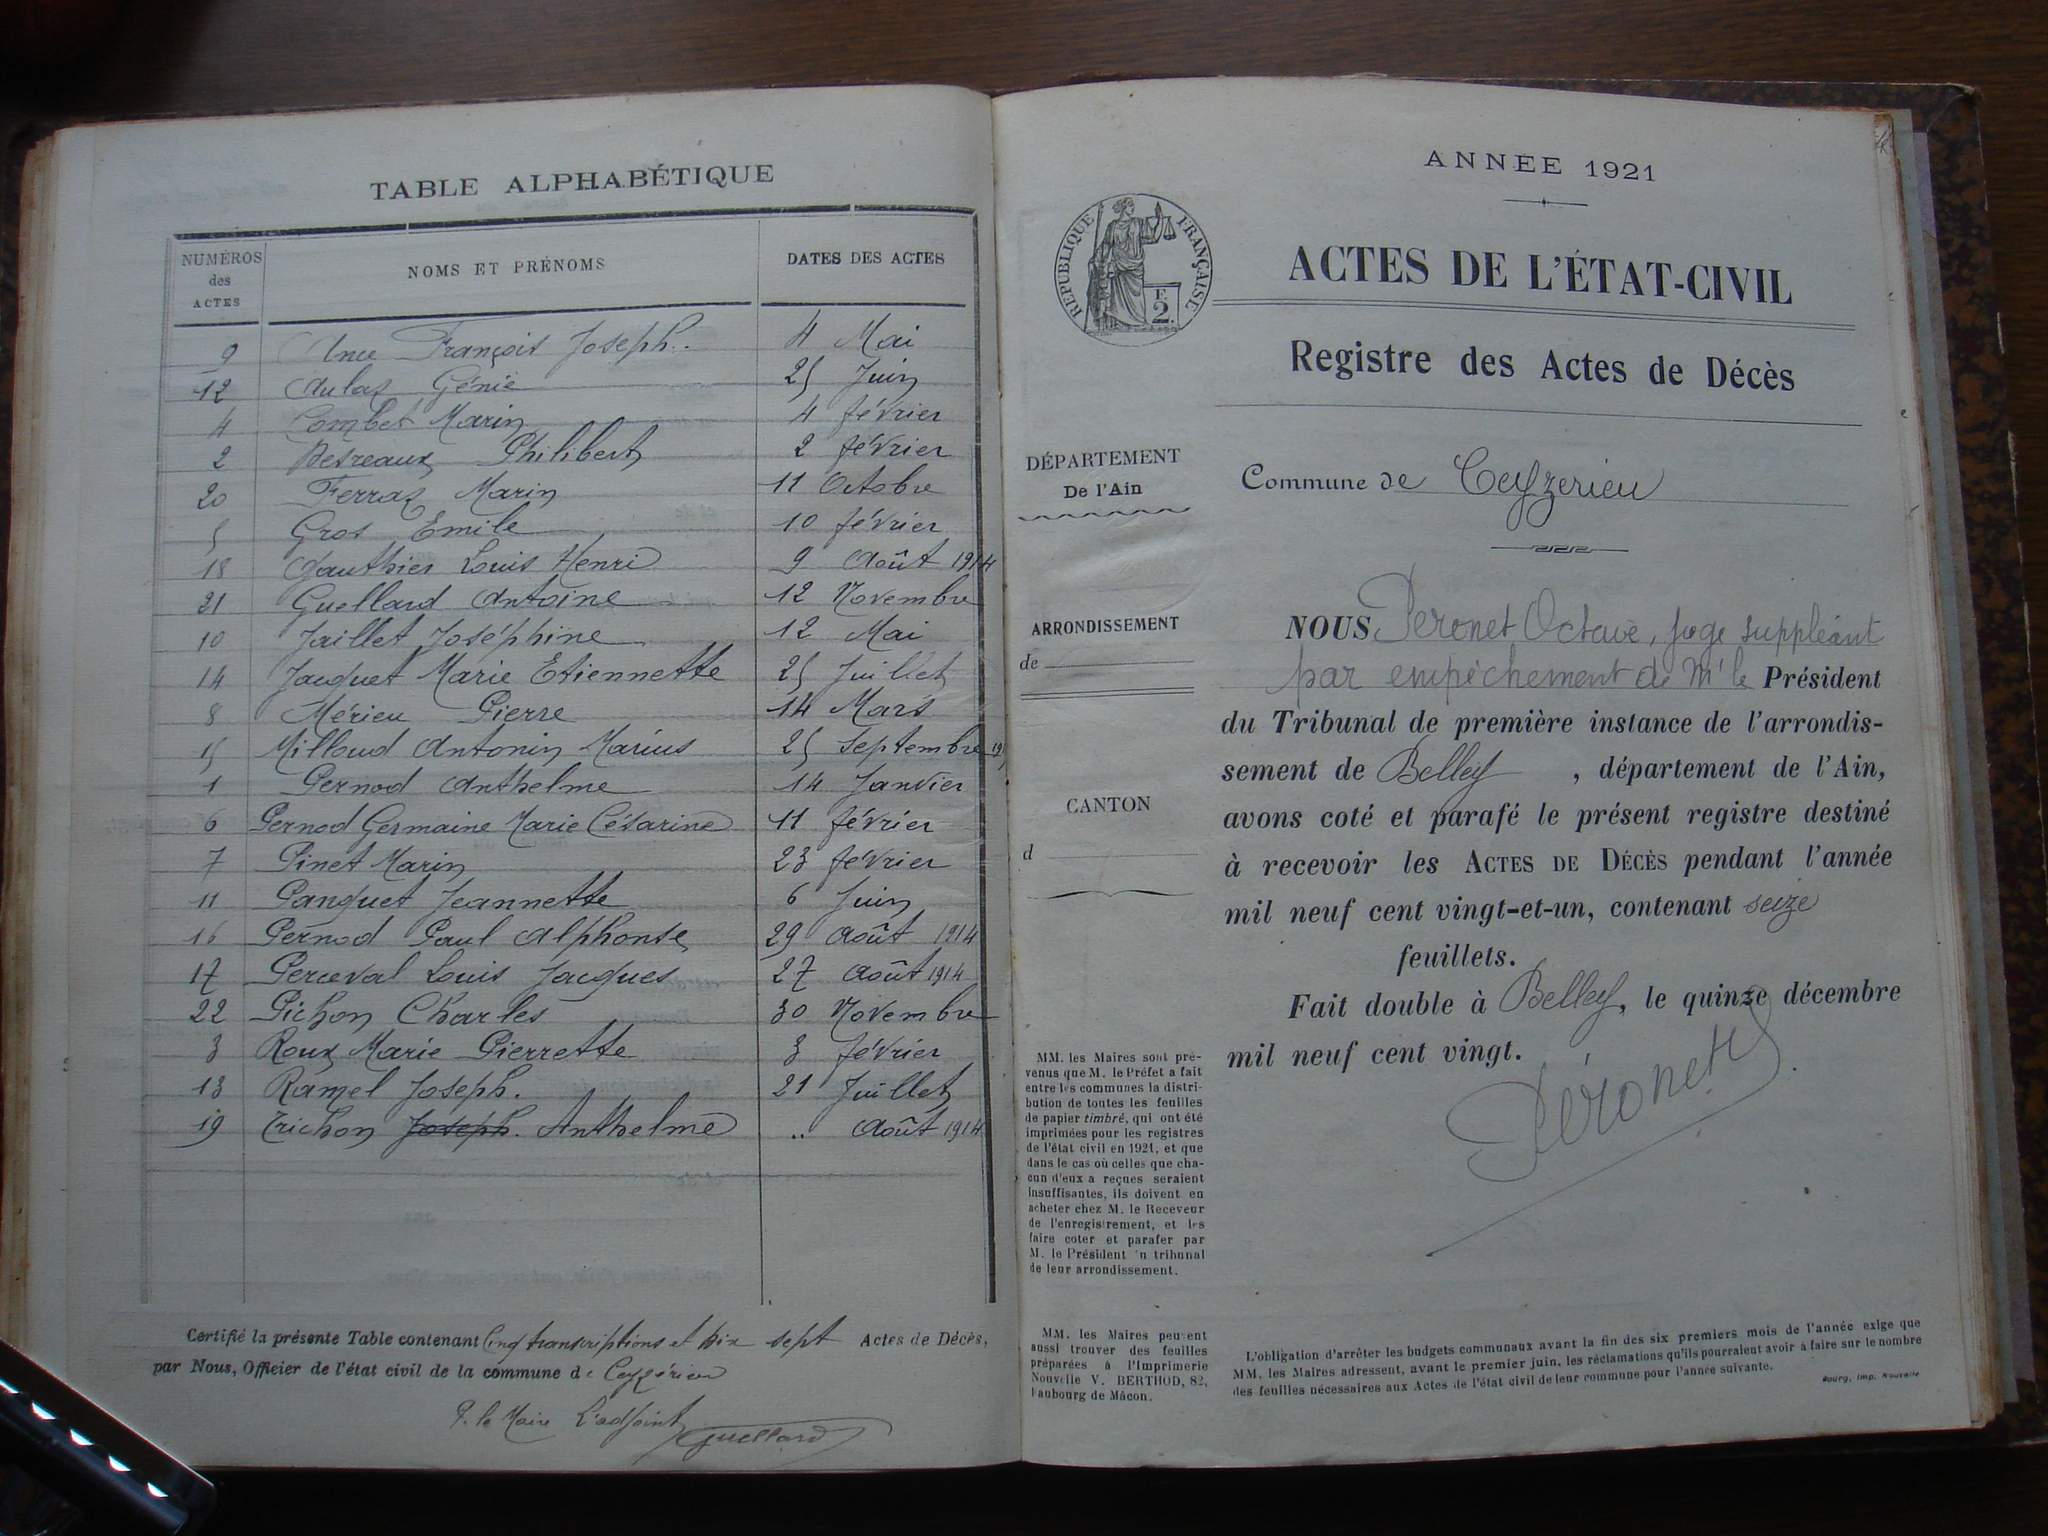 TABLE ALPHABÉTIQUE
NUMÉROS des ACTES NOMS ET PRÉNOMS DATES DES ACTES
9 François Joseph. 4 Mai
12 Aulaz Génie 25 Juin
4 Combet Marin 4 février
2 Désreaux Philibert 2 février
20 Ferraz Marin 11 Octobre
5 Gros Emile 10 février
18 Gauthier Louis Henri 9 Août 1914
21 Guellard Antoine 12 Novembre
10 Jaillet Joséphine 12 Mai
14 Jacquet Marie Etiennette 25 Juillet
8 Mérieu Pierre 14 Mars
15 Milloud Antonin Marius 25 Septembre
1 Pernod Anthelme 14 Janvier
6 Pernod Germaine Marie Césarine 11 février
7 Pinet Marin 23 février
11 Panguet Jeannette 6 Juin
16 Pernod Paul Alphonse 29 Août 1914
17 Perceval Louis Jacques 27 Août 1914
22 Pichon Charles 30 Novembre
3 Roux Marie Pierrette 3 février
13 Ramel Joseph. 21 Juillet
19 Trichon Joseph. Anthelme .. Août 1914
Certifié la présente Table contenant Cinq transcriptions et dix sept Actes de Décès,
par Nous, Officier de l'état civil de la commune de Ceyzérieu
P. le Maire L'adjoint
Guellard
ANNÉE 1921
RÉPUBLIQUE FRANÇAISE
F.
2.
ACTES DE L'ÉTAT-CIVIL
Registre des Actes de Décès
DÉPARTEMENT
De l'Ain
Commune de Ceyzerieu
ARRONDISSEMENT
de
CANTON
d
NOUS Peronet Octave, juge suppléant
par empêchement de Mr le Président
du Tribunal de première instance de l'arrondis-
sement de Belley , département de l'Ain,
avons coté et parafé le présent registre destiné
à recevoir les ACTES DE DÉCÈS pendant l'année
mil neuf cent vingt-et-un, contenant seize
feuillets.
Fait double à Belley, le quinze décembre
mil neuf cent vingt.
Péronet
MM. les Maires sont pré-
venus que M. le Préfet a fait
entre les communes la distri-
bution de toutes les feuilles
de papier timbré, qui ont été
imprimées pour les registres
de l'état civil en 1921, et que
dans le cas où celles que cha-
cun d'eux a reçues seraient
insuffisantes, ils doivent en
acheter chez M. le Receveur
de l'enregistrement, et les
faire coter et parafer par
M. le Président du tribunal
de leur arrondissement.
MM. les Maires peuvent
aussi trouver des feuilles
préparées à l'Imprimerie
Nouvelle V. BERTHOD, 82,
faubourg de Mâcon.
L'obligation d'arrêter les budgets communaux avant la fin des six premiers mois de l'année exige que
MM. les Maires adressent, avant le premier juin, les réclamations qu'ils pourraient avoir à faire sur le nombre
des feuilles nécessaires aux Actes de l'état civil de leur commune pour l'année suivante.
Bourg, Imp. Nouvelle